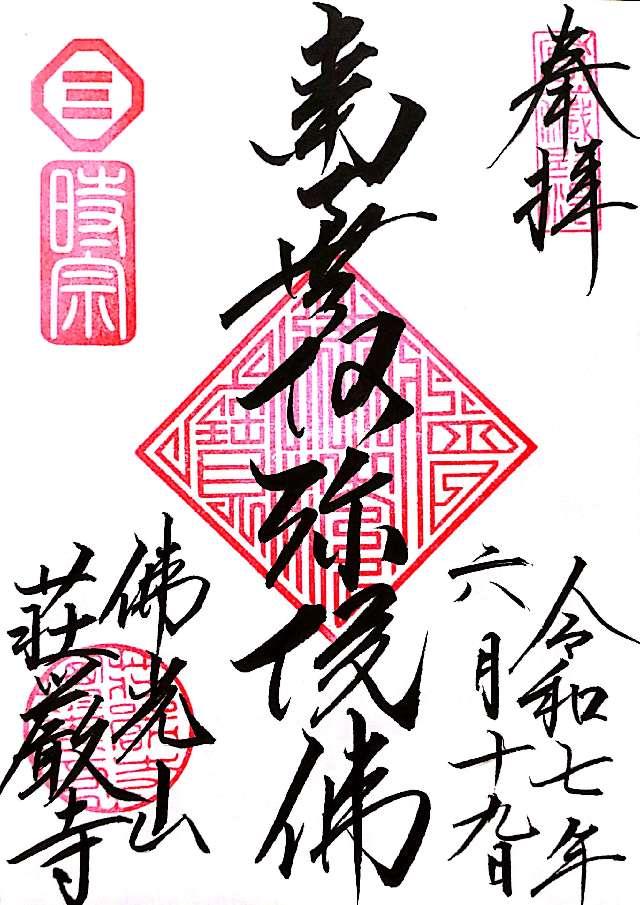 奉拝
令和七年
六月十九日
南無阿弥陀佛
佛光山
荘厳寺
三
時宗